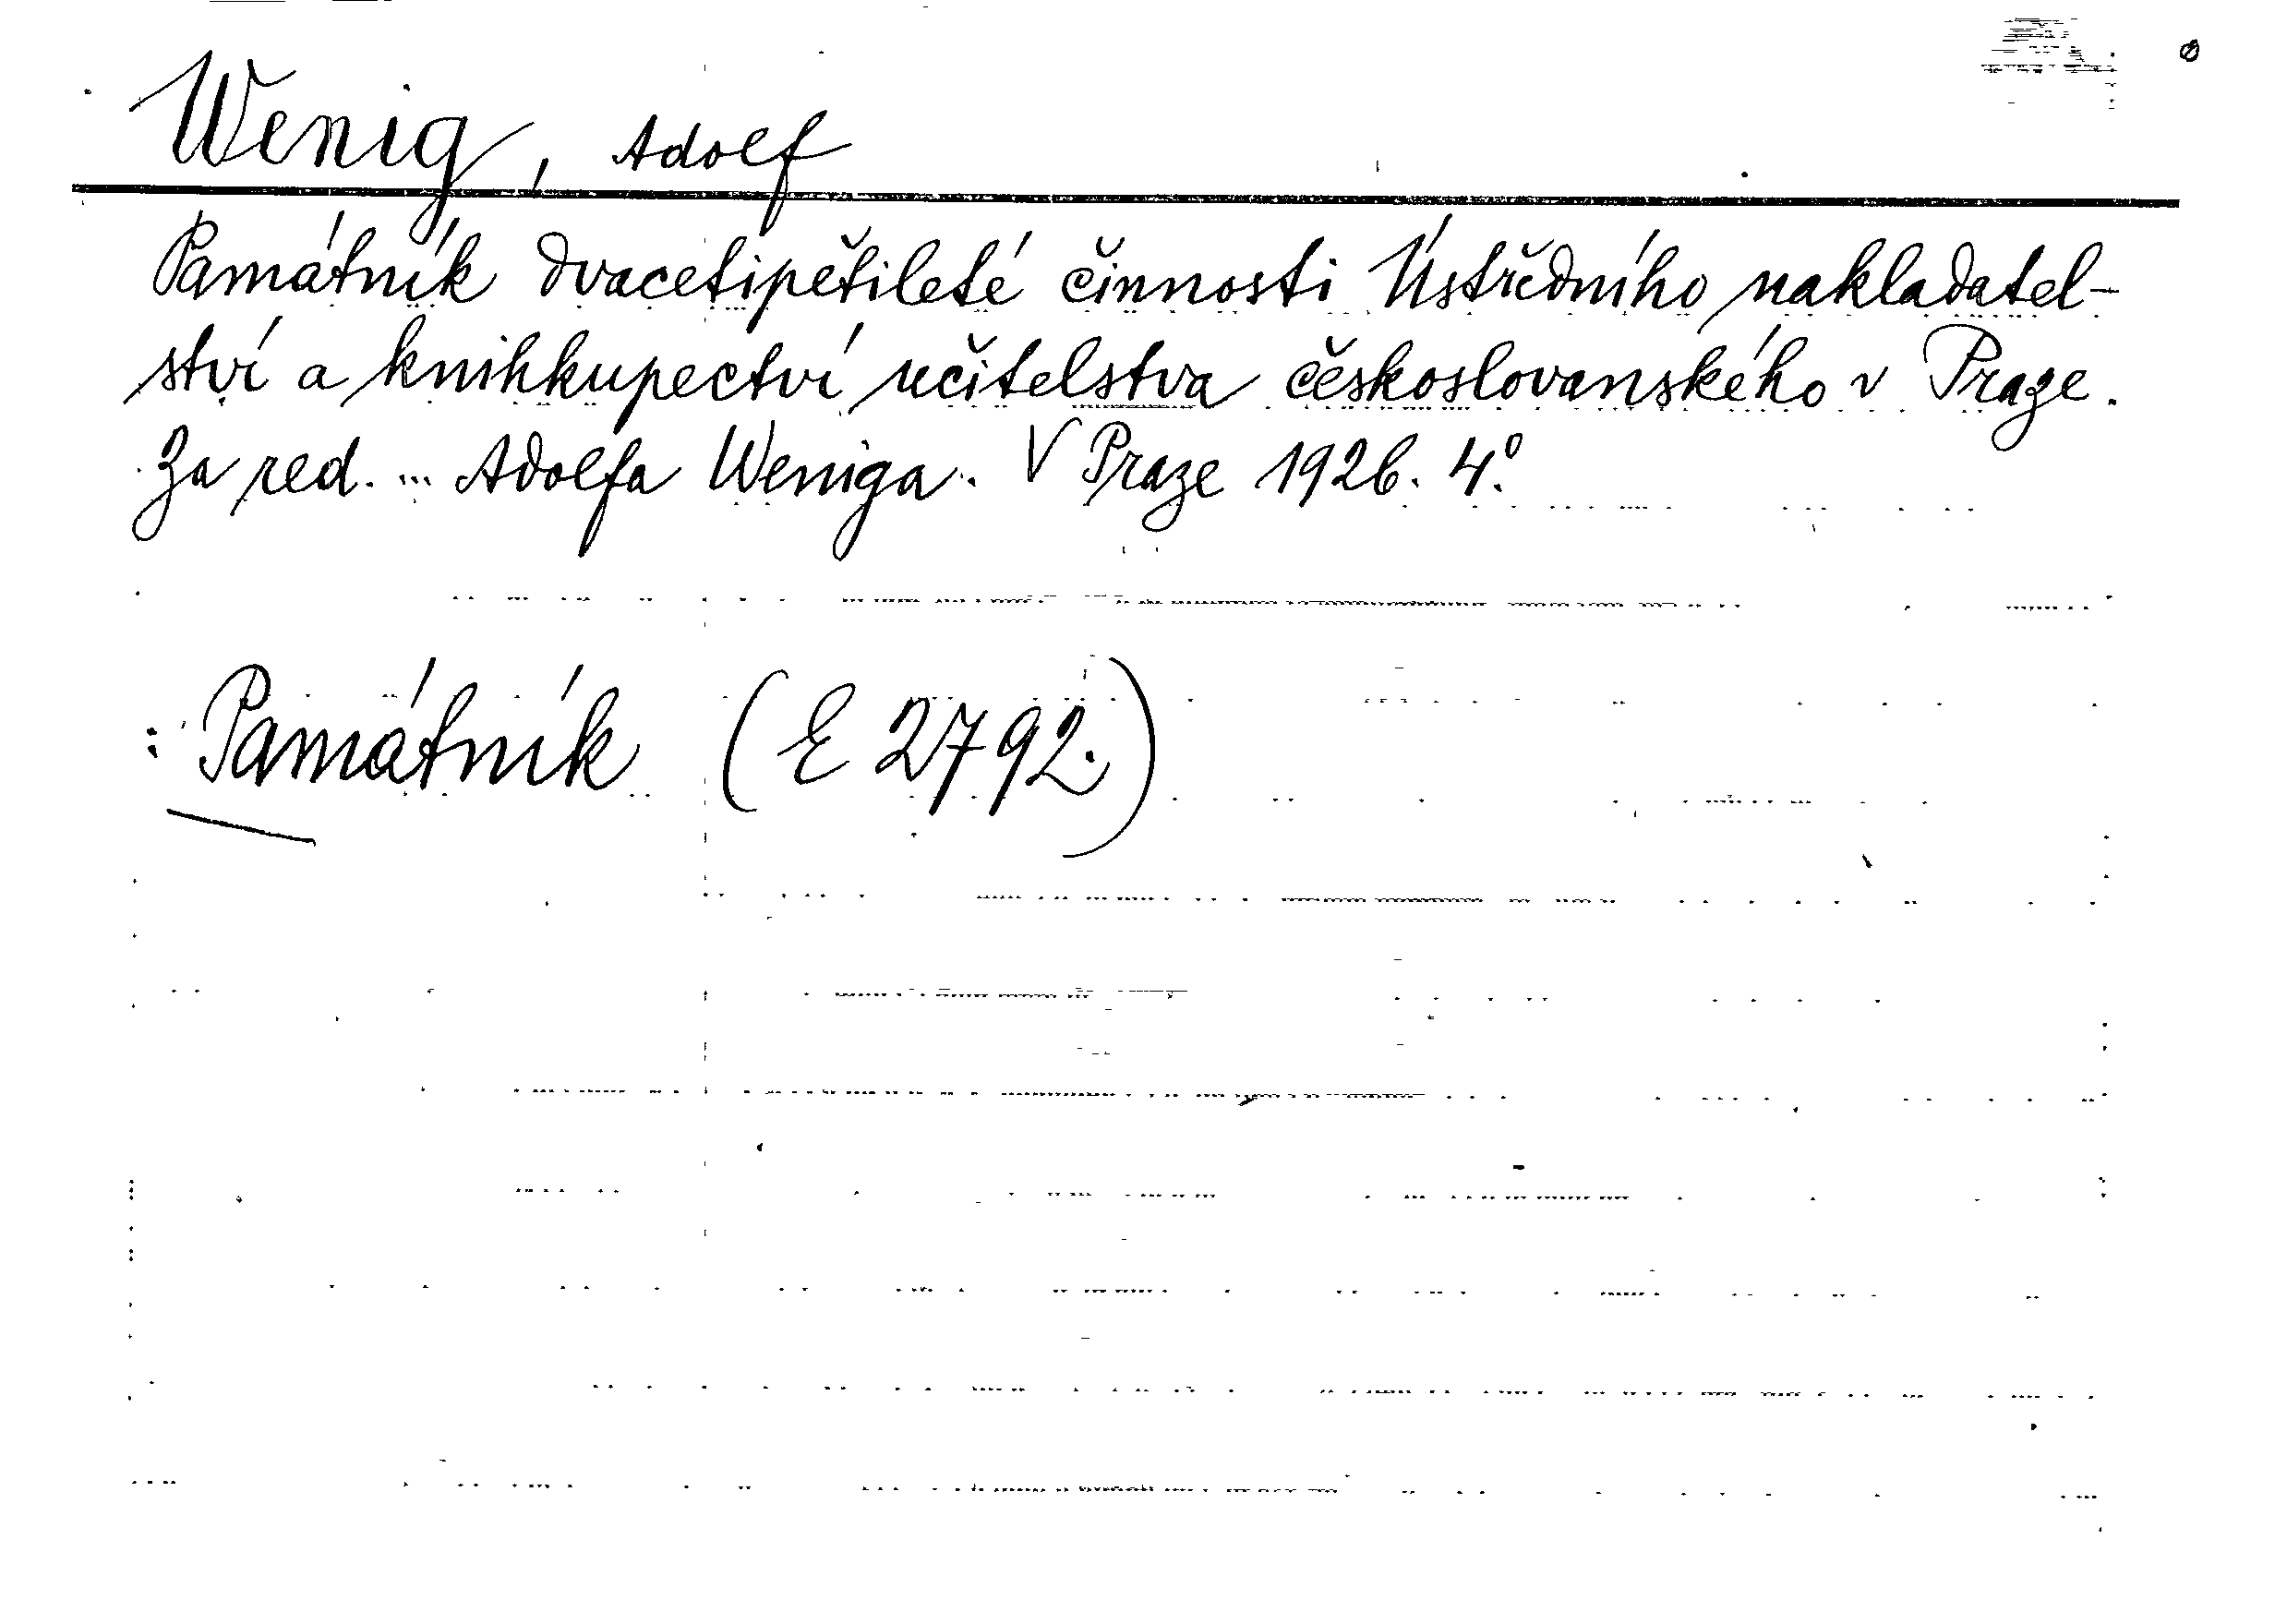 Wenig, Adolf
Památník dvacetipětileté činnosti Ústředního nakladatel-
ství a knihkupectví učitelstva československého v Praze.
Za red. ... Adolfa Weniga. V Praze 1926. 4°.
: Památník (E 2792.)